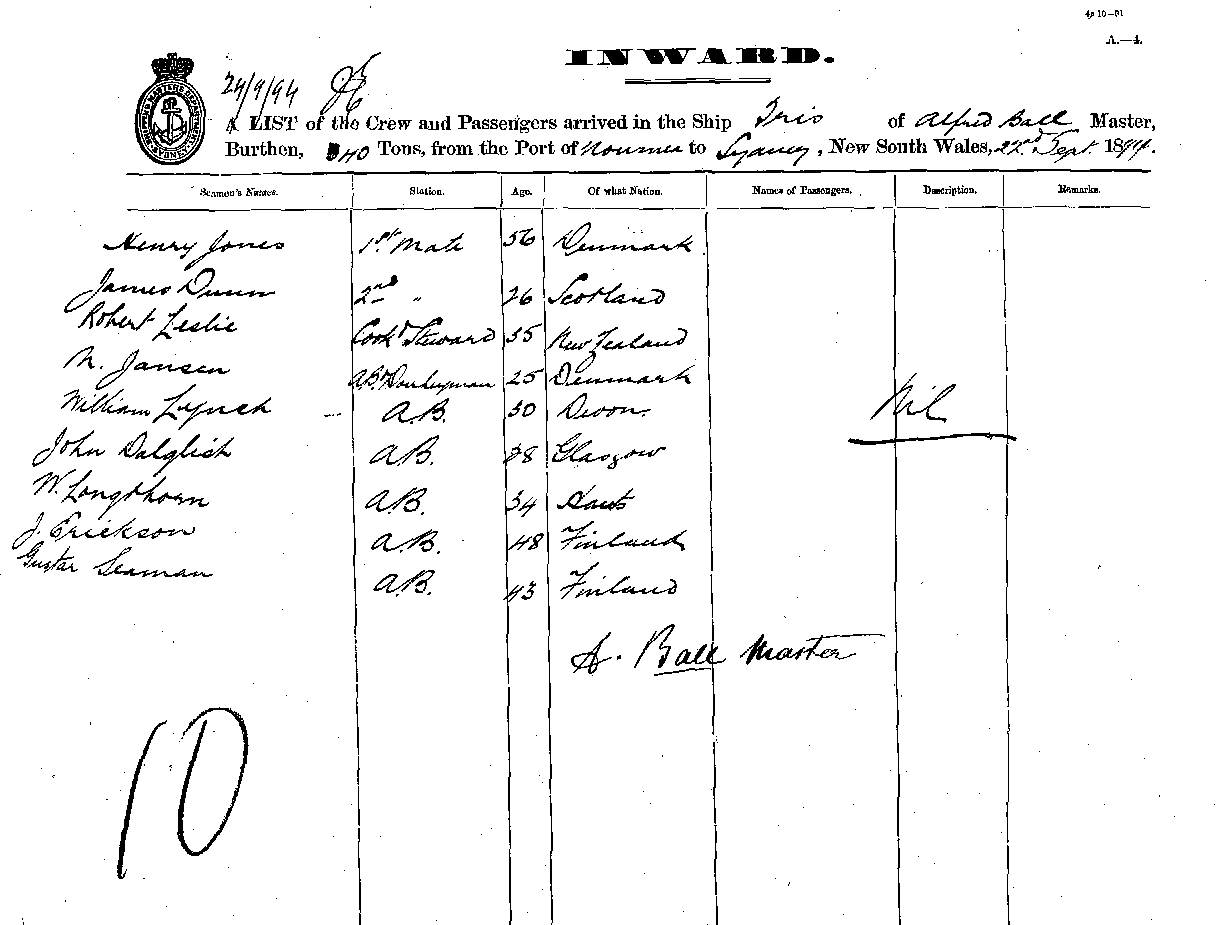 4p 10—91
A.—4.
INWARD.
24/9/94
A LIST of the Crew and Passengers arrived in the Ship Iris of Alfred Ball Master,
Burthen, 340 Tons, from the Port of Noumea to Sydney, New South Wales, 22nd Sept. 1894.
Seamen's Names. Station. Age. Of what Nation. Names of Passengers. Description. Remarks.
Henry Jones 1st Mate 56 Denmark
James Dunn 2nd " 26 Scotland
Robert Leslie Cook & Steward 35 New Zealand
N. Jansen A.B. & Donkeyman 25 Denmark
William Lynch A.B. 30 Devon.
Nil
John Dalglish A.B. 28 Glasgow
W. Longthorn A.B. 34 Hants
J. Erickson A.B. 48 Finland
Gustav Seaman A.B. 43 Finland
A. Ball Master
10